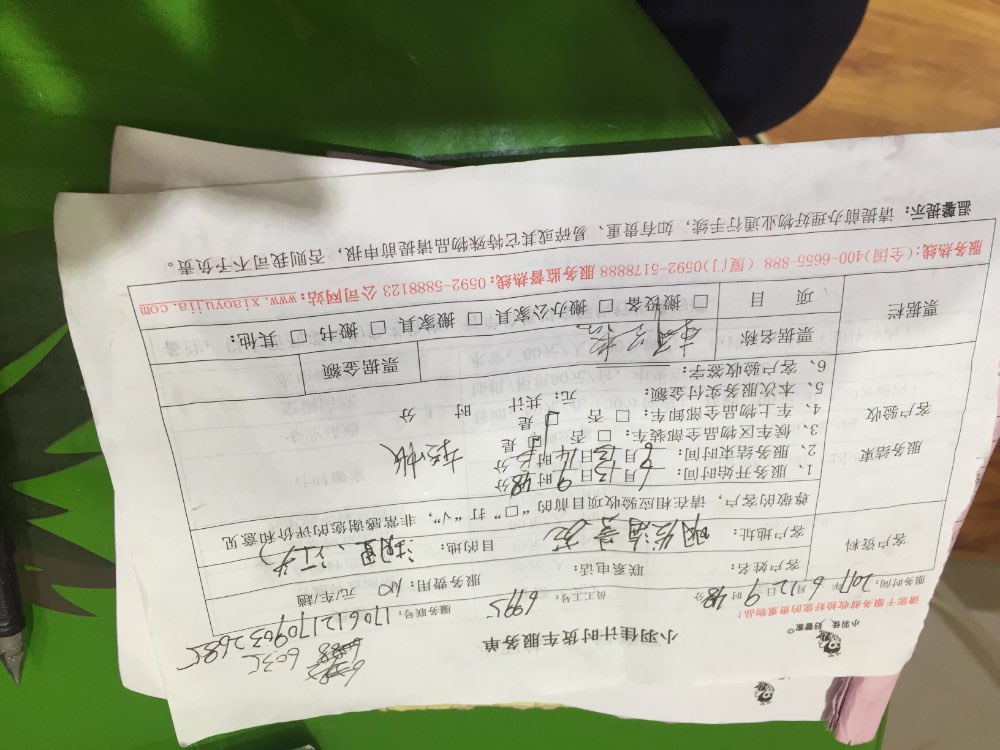 小羽佳 好管家
小羽佳计时货车服务单
6035
请您于服务前收拾好您的贵重物品！
员工工号：6995
服务联号：1706121709032685
服务时间：2017年6月12日9时48分
服务费用：100元/车/趟
客户资料
客户姓名：
联系电话：
客户地址：
目的地：
尊敬的客户，请在相应验收项目前的“□”打“√”，非常感谢您的评价和意见
服务结束
客户验收
1、服务开始时间：6月13日9时48分
2、服务结束时间：6月13日14时分
3、候车区物品全部装车：□ 否 □ 是
4、车上物品全部卸车：□ 否 □ 是
5、本次服务实付金额：元；共计时分
6、客户验收签字：
票据栏
票据名称
票据金额
项目
□ 搬设备 □ 搬办公家具 □ 搬家具 □ 搬书 □ 其他：
服务热线：(全国)400-6655-888（厦门)0592-5178888 服务监督热线：0592-5888123 公司网站：www.xiaoyujia.com
温馨提示：请提前办理好物业通行手续，如有贵重、易碎或其它特殊物品请提前申报，否则我司不予负责。